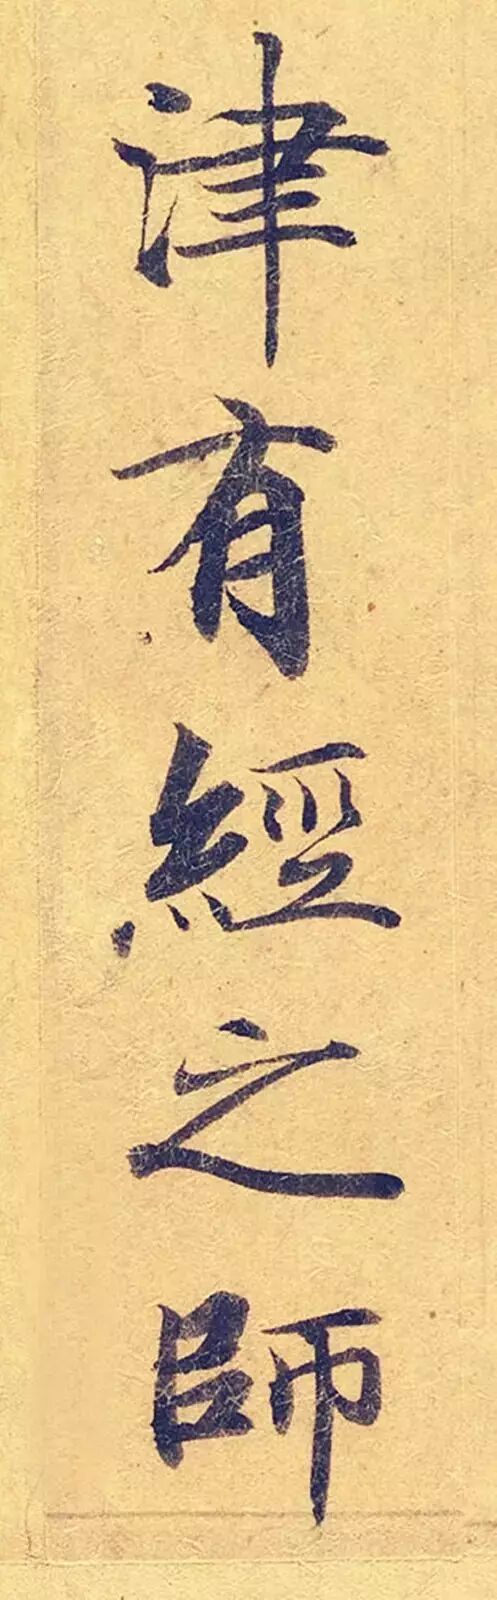 津有經之師